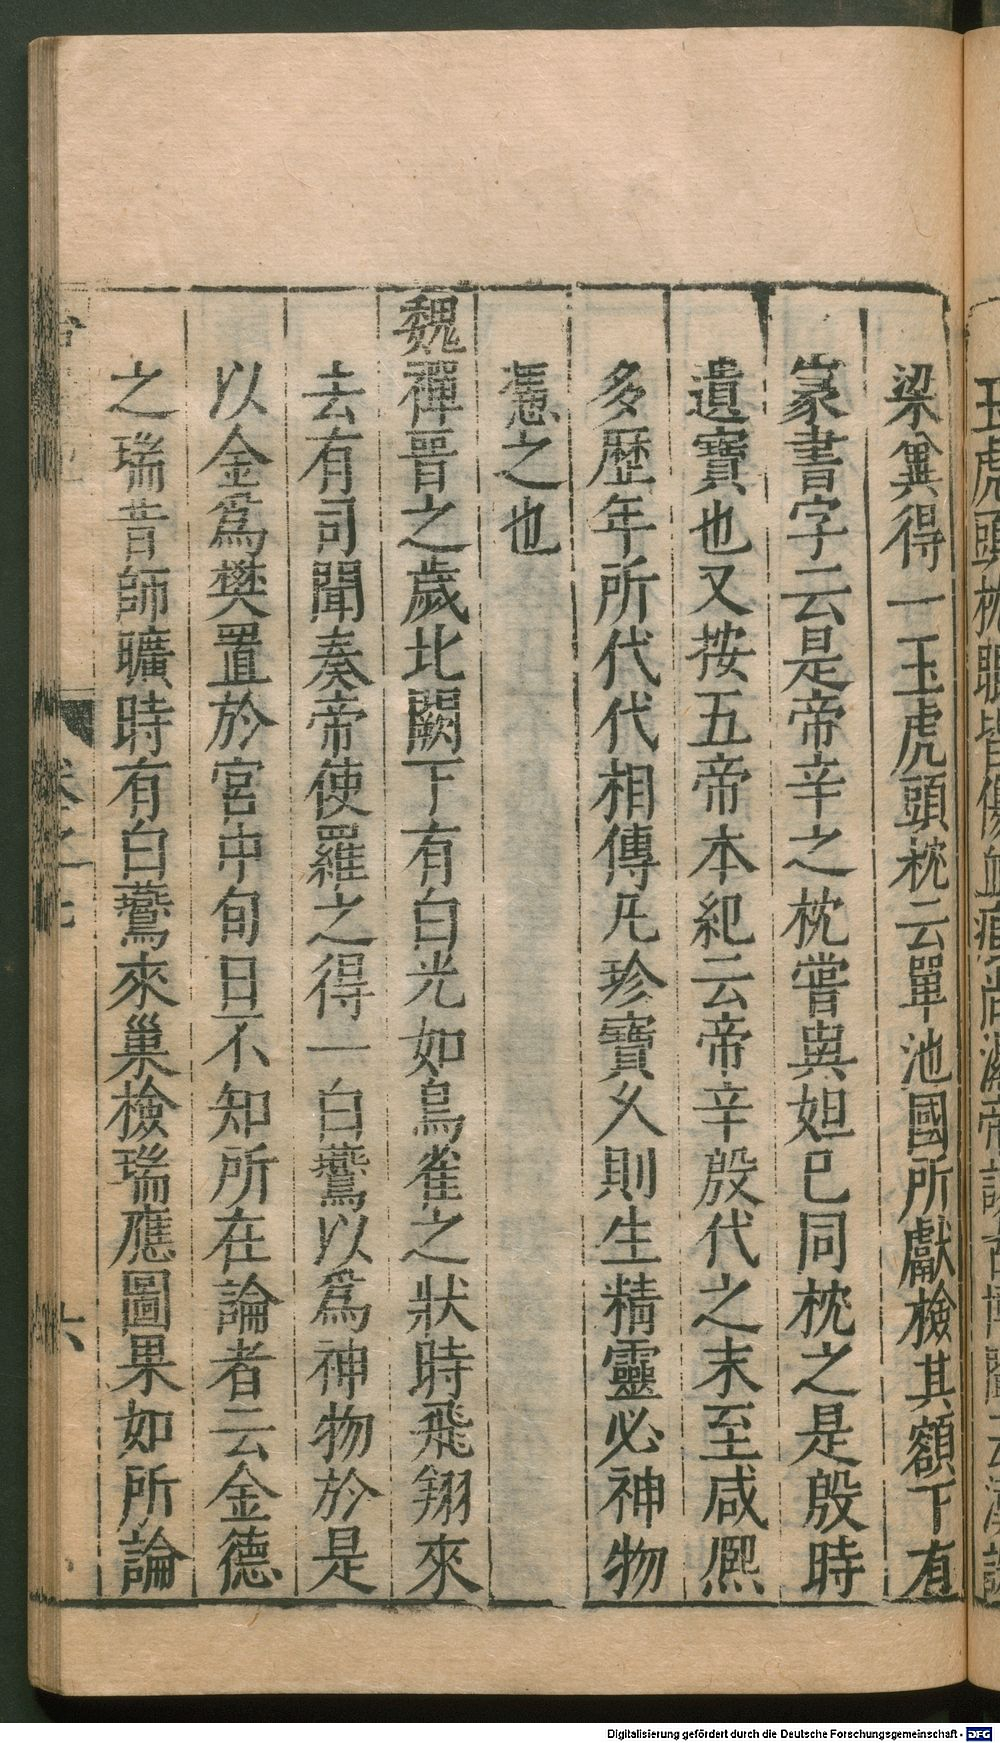 梁兾得一玉虎頭枕云單池國所獻檢其額下有
篆書字云是帝辛之枕嘗與妲巳同枕之是殷時
遺寶也又按五帝本紀云帝辛殷代之末至咸熈
多歷年所代代相傳凡珍寶久則生精靈必神物
憑之也
魏禪晉之歲北闕下有白光如鳥雀之狀時飛翔來
去有司聞奏帝使羅之得一白鷰以爲神物於是
以金爲樊置於宮中旬日不知所在論者云金德
之瑞昔師曠時有白鷰來巢檢瑞應圖果如所論
卷之七
六
Digitalisierung gefördert durch die Deutsche Forschungsgemeinschaft - DFG